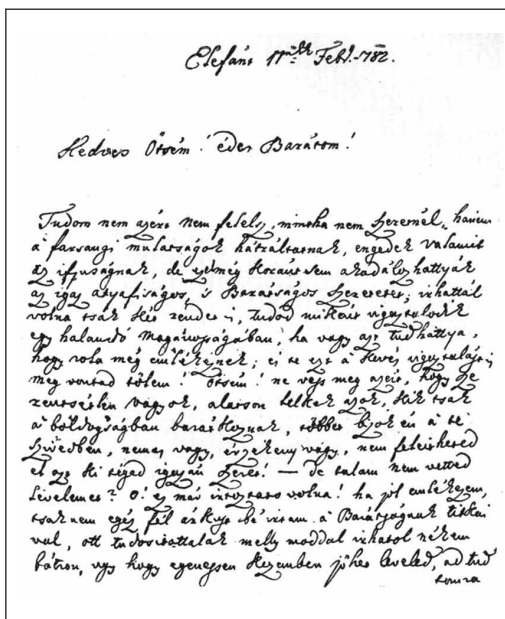 Elefánt 11 Feb. 782.
Kedves Ötsém! édes Barátom!
Tudom nem azért nem felelsz, mintha nem szeretnél, hanem
a' farsangi mulatságok hátráltatnak, engedek valamit
az ifjuságnak, de
az igaz atyafiságos, 's Barátságos szeretetet; irhattál
volna tsak két rendet is, tudod miként vigasztalódik
egy halandó magánosságában, ha vagy azt tudhattya,
hogy rola még emlékeznek; és te ezt a' kevés vigasztalást is
meg vontad tőlem! Ötsém! ne vess meg azért, hogy
szerentsétlen vagyok, alatson lelkek azok, kik tsak
a' boldogságban barátkoznak, többet bizok én a' te
szivedben, nemes vagy, érzékeny vagy, nem felejtheted
el azt ki téged igazán szeret! — de talam nem vetted
levelemet? O! ez már
tsak nem egész fél árkust bé irtam a' Barátságnak titkai
val, ott tudositottalak melly moddal irhatol nékem
bátron, ugy hogy egyenessen kezemben jőhet leveled, ad tud